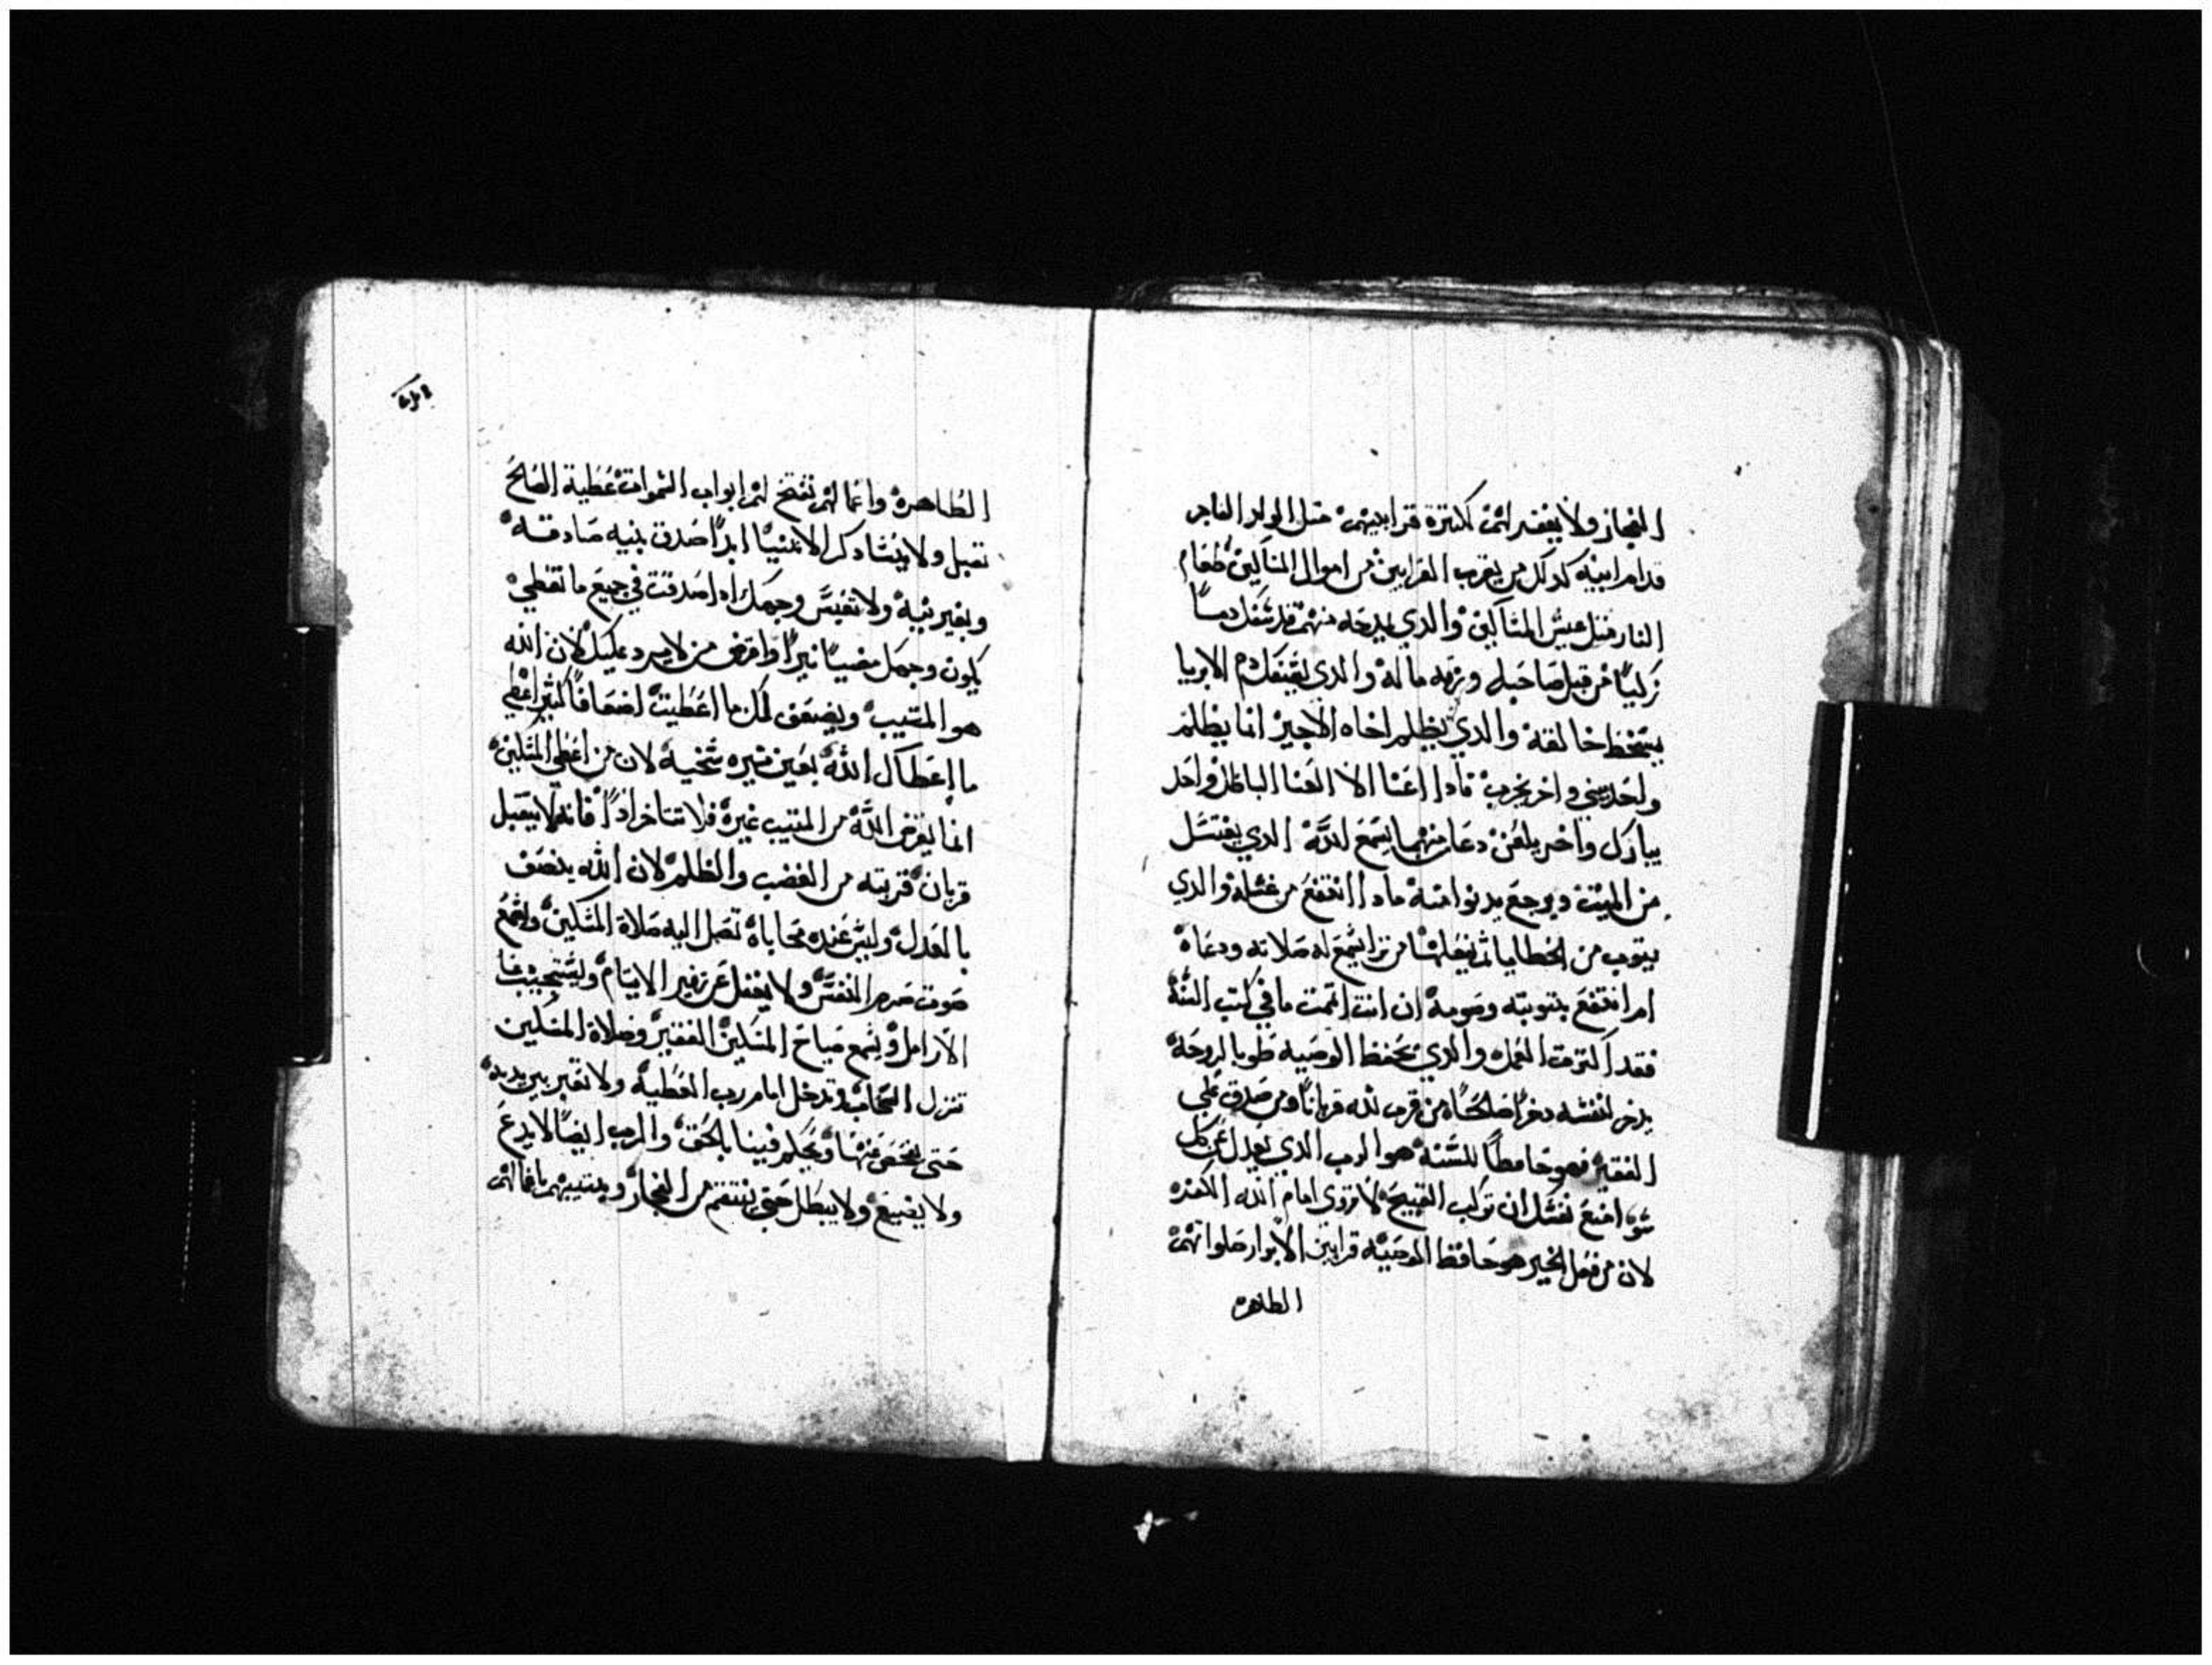 الفجار ولا يغفر لهم كثرة قرابينهم مثل الولد الفاجر
قدام ابيه كدلك من يقرب القرابين من اموال المساكين طعام
النار مثل عيش المساكين والدي يدخله منهم قد سفك دماً
زكياً من قبل صاحبه ورثه ماله والدي يسفك دم الابريا
يسخط خالقه والدي يظلم اخاه الاجير انما يظلم
واحد يبني واخر يخرب مادا اغنا الا العنا الباطل واحد
يبارك واخر يلعن دعا من منهما يسمع الله الدي يغتسل
من الميت ويرجع يدنوا منه مادا انتفع من غسله والدي
يتوب من الخطايا ثم يفعلها من ترا يسمع له صلاته ودعاه
ام انتفع بتوبته وصومه ان انت اتممت ما في كتب السنة
فقد اكترت العمل والدي يحفظ الوصيه طوبا لروحه
يدخر لنفسه دخراً صلحاً من قرب لله قرباناً ومن صدق على
الفقير فهو حافظاً للسنه هو الرب الدي يعدل عن كل
سو امنع نفسك ان تركب القبيح لا تروى امام الله الكفره
لان من فعل الخير هو حافظ الوصيه قرابين الابرار صلواتهم
الطاهره
الطاهره وانما لهم تفتح لهم ابواب السموات عطية الصالح
تقبل ولا يتشا دكر الاتنينا ابداً صدق بنيه صادقه
وبغير نيه ولا تعبس وجهك ادا صدقت في جميع ما تعطي
يكون وجهك مضيياً نيراً واقرض من لا يرد عليك لان الله
هو المتيب ويضعف لك ما اعطيت اضعافاً كثير اعطي
ما اعطاك الله بعين نيره سخيه لان من اعطي المسكين
انما يقرض الله من المتيب غيره فلا تتاخر اداً فانه لا يتقبل
قربان قربته من الغضب والظلم لان الله ينصف
بالعدل وليس عنده محاباه تصل اليه صلاة المسكين واسمع
صوت ضرر النفس ولا يغفل عن زفير الايتام ويستجيب
الارامل ويسمع صياح المسكين الفقير وصلاة المسكين
تنزل السحاب وتدخل امام رب العطيه ولا تعبر بين يديه
حتى يفحص عنها ويحكم فينا بالحق والرب ايضاً لا يدع
ولا يضيع ولا يبطل حتى ينتقم من الفجار ويتيبهم بافعالهم